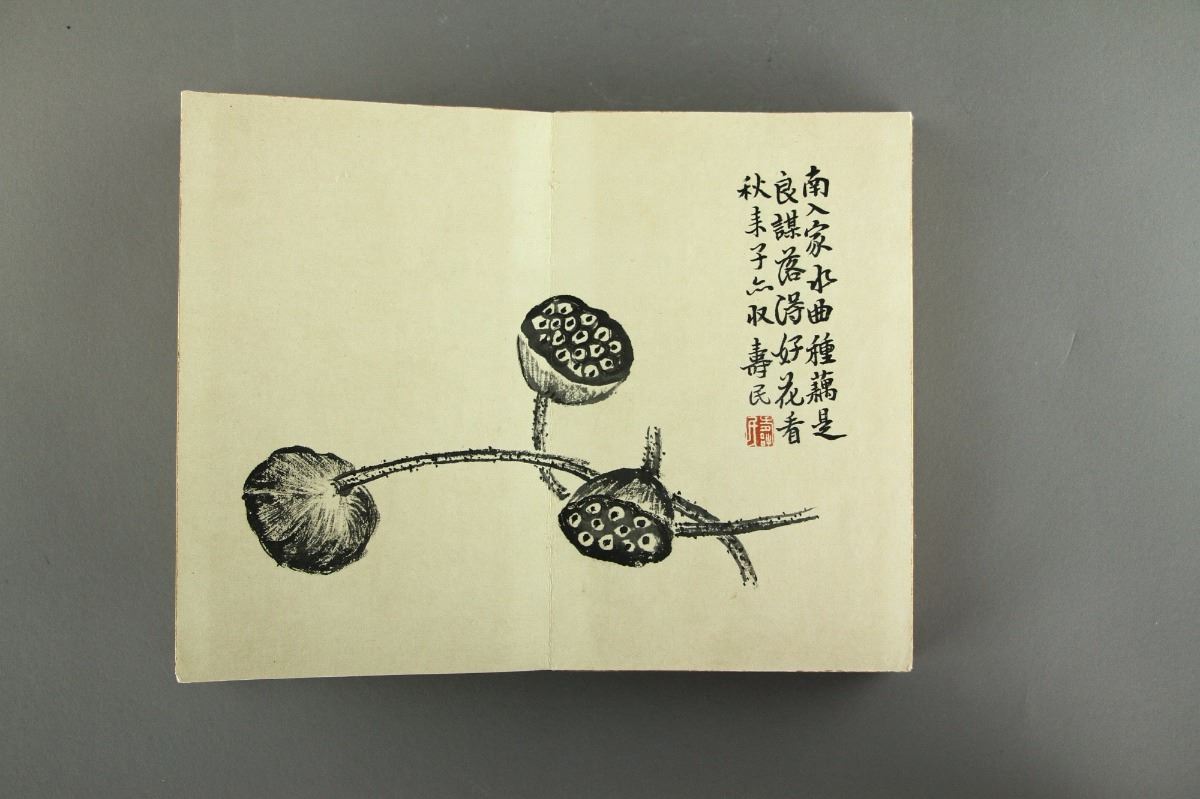 南入家水曲種藕是
良謀落得好花看
秋来子亦收 壽民
壽民